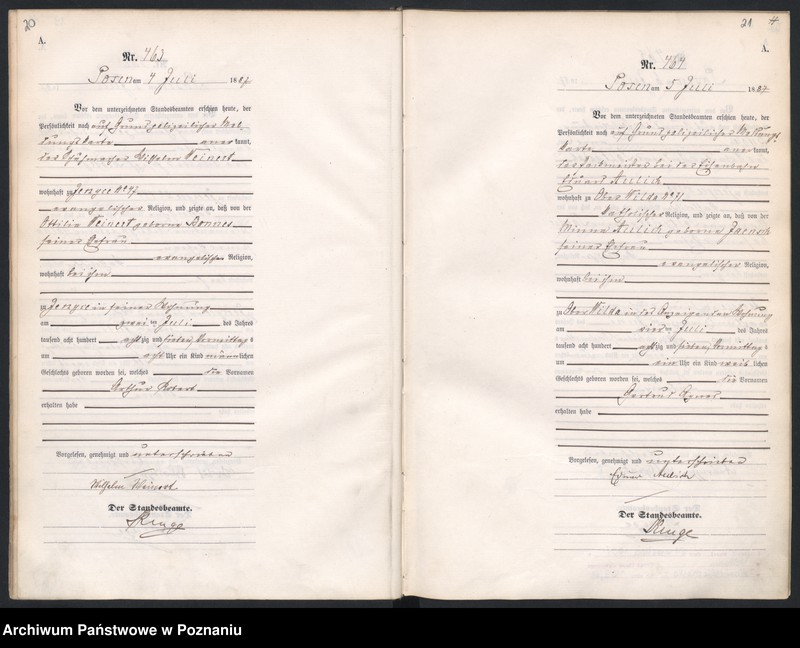 20
A.
Nr. 463
Posen am 4 Juli 1887
Vor dem unterzeichneten Standesbeamten erschien heute, der
Persönlichkeit nach auf Grund polizeilicher Mel-
dungskarte anerkannt,
der Schuhmacher Wilhelm Weinert
wohnhaft zu Jerzyce
evangelischer Religion, und zeigte an, daß von der
Ottilie Weinert geborne
seiner Ehefrau
evangelischer Religion,
wohnhaft bei ihm
zu Jerzyce in seiner Wohnung
am zwei ten Juli des Jahres
tausend acht hundert achtzig und sieben, Vormittags
um acht Uhr ein Kind männlichen
Geschlechts geboren worden sei, welches die Vornamen
Arthur Robert
erhalten habe
Vorgelesen, genehmigt und unterschrieben
Wilhelm Weinert
Der Standesbeamte.
21 4
A.
Nr. 464
Posen am 5 Juli 1887
Vor dem unterzeichneten Standesbeamten erschien heute, der
Persönlichkeit nach auf Grund polizeilicher Meldungs
karte anerkannt,
bei der Eisenbahn
Aulich
wohnhaft zu Ober Wilda
katholischer Religion, und zeigte an, daß von der
Minna Aulich geborne Jaensch
seiner Ehefrau
evangelischer Religion,
wohnhaft bei ihm
zu Ober Wilda in des Anzeigenden Wohnung
am vier ten Juli des Jahres
tausend acht hundert achtzig und sieben, Vormittags
um ein Uhr ein Kind weib lichen
Geschlechts geboren worden sei, welches die Vornamen
Gertrud Agnes
erhalten habe
Vorgelesen, genehmigt und unterschrieben
Aulich
Der Standesbeamte.
Archiwum Państwowe w Poznaniu